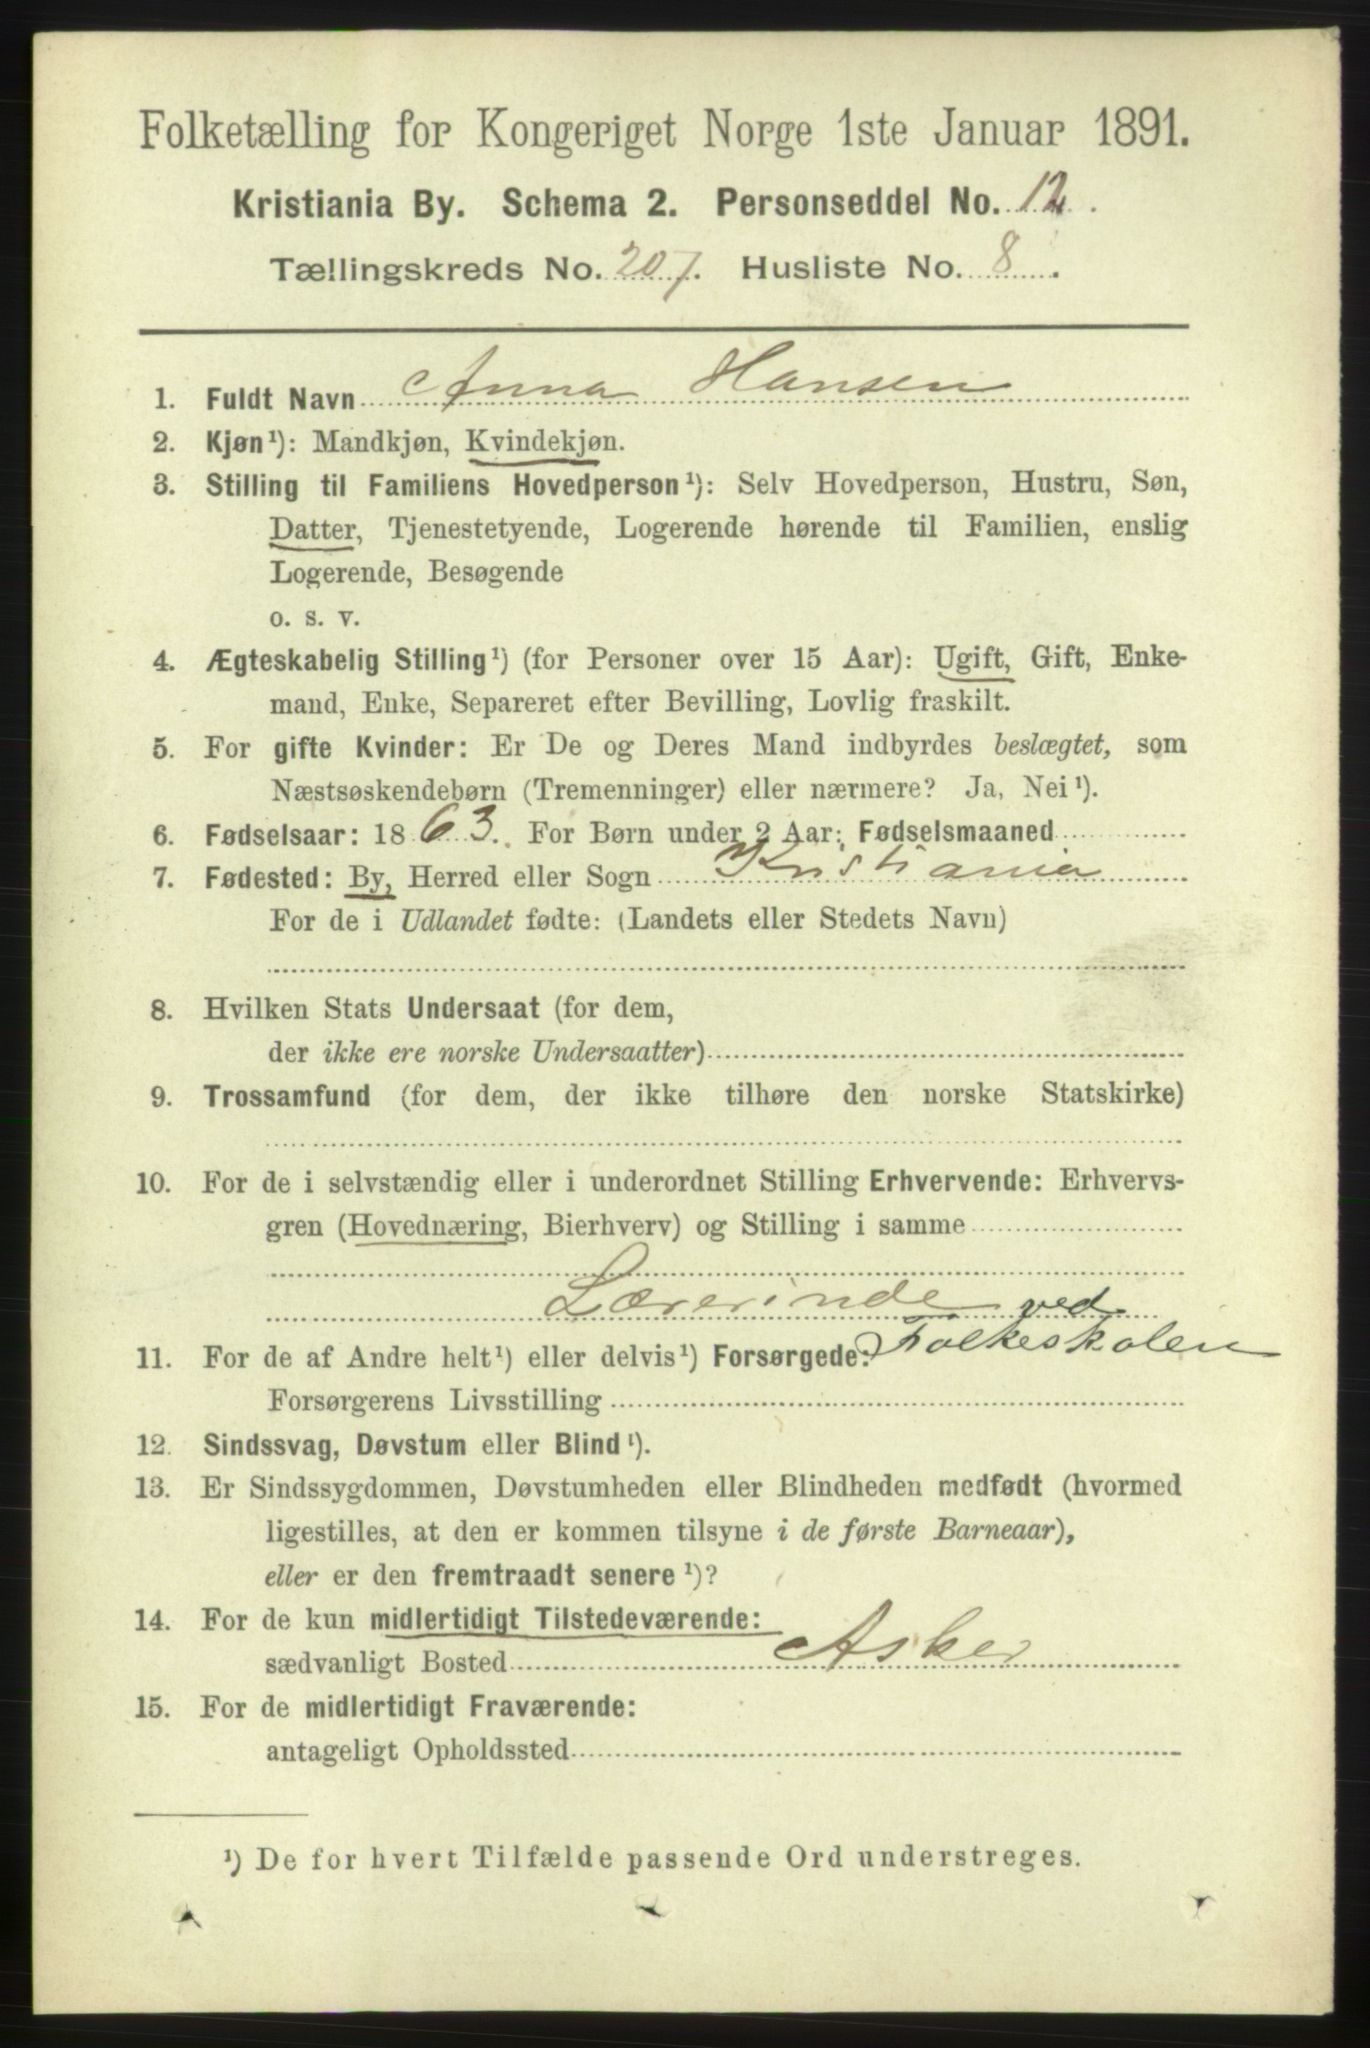 Folketælling for Kongeriget Norge 1ste Januar 1891.
Kristiania By. Schema 2. Personseddel No. 12.
Tællingskreds No. 207. Husliste No. 8.
1. Fuldt Navn Anna Hansen
2. Kjøn¹): Mandkjøn, Kvindekjøn.
3. Stilling til Familiens Hovedperson¹): Selv Hovedperson, Hustru, Søn,
Datter, Tjenestetyende, Logerende hørende til Familien, enslig
Logerende, Besøgende
o. s. v.
4. Ægteskabelig Stilling¹) (for Personer over 15 Aar): Ugift, Gift, Enke-
mand, Enke, Separeret efter Bevilling, Lovlig fraskilt.
5. For gifte Kvinder: Er De og Deres Mand indbyrdes beslægtet, som
Næstsøskendebørn (Tremenninger) eller nærmere? Ja, Nei¹).
6. Fødselsaar: 1863. For Børn under 2 Aar: Fødselsmaaned
7. Fødested: By, Herred eller Sogn Kristiania
For de i Udlandet fødte: (Landets eller Stedets Navn)
8. Hvilken Stats Undersaat (for dem,
der ikke ere norske Undersaatter)
9. Trossamfund (for dem, der ikke tilhøre den norske Statskirke)
10. For de i selvstændig eller i underordnet Stilling Erhvervende: Erhvervs-
gren (Hovednæring, Bierhverv) og Stilling i samme
Lærerinde ved
Folkeskolen
11. For de af Andre helt¹) eller delvis¹) Forsørgede:
Forsørgerens Livsstilling
12. Sindssvag, Døvstum eller Blind¹).
13. Er Sindssygdommen, Døvstumheden eller Blindheden medfødt (hvormed
ligestilles, at den er kommen tilsyne i de første Barneaar),
eller er den fremtraadt senere¹)?
14. For de kun midlertidigt Tilstedeværende:
sædvanligt Bosted Asker
15. For de midlertidigt Fraværende:
antageligt Opholdssted
¹) De for hvert Tilfælde passende Ord understreges.